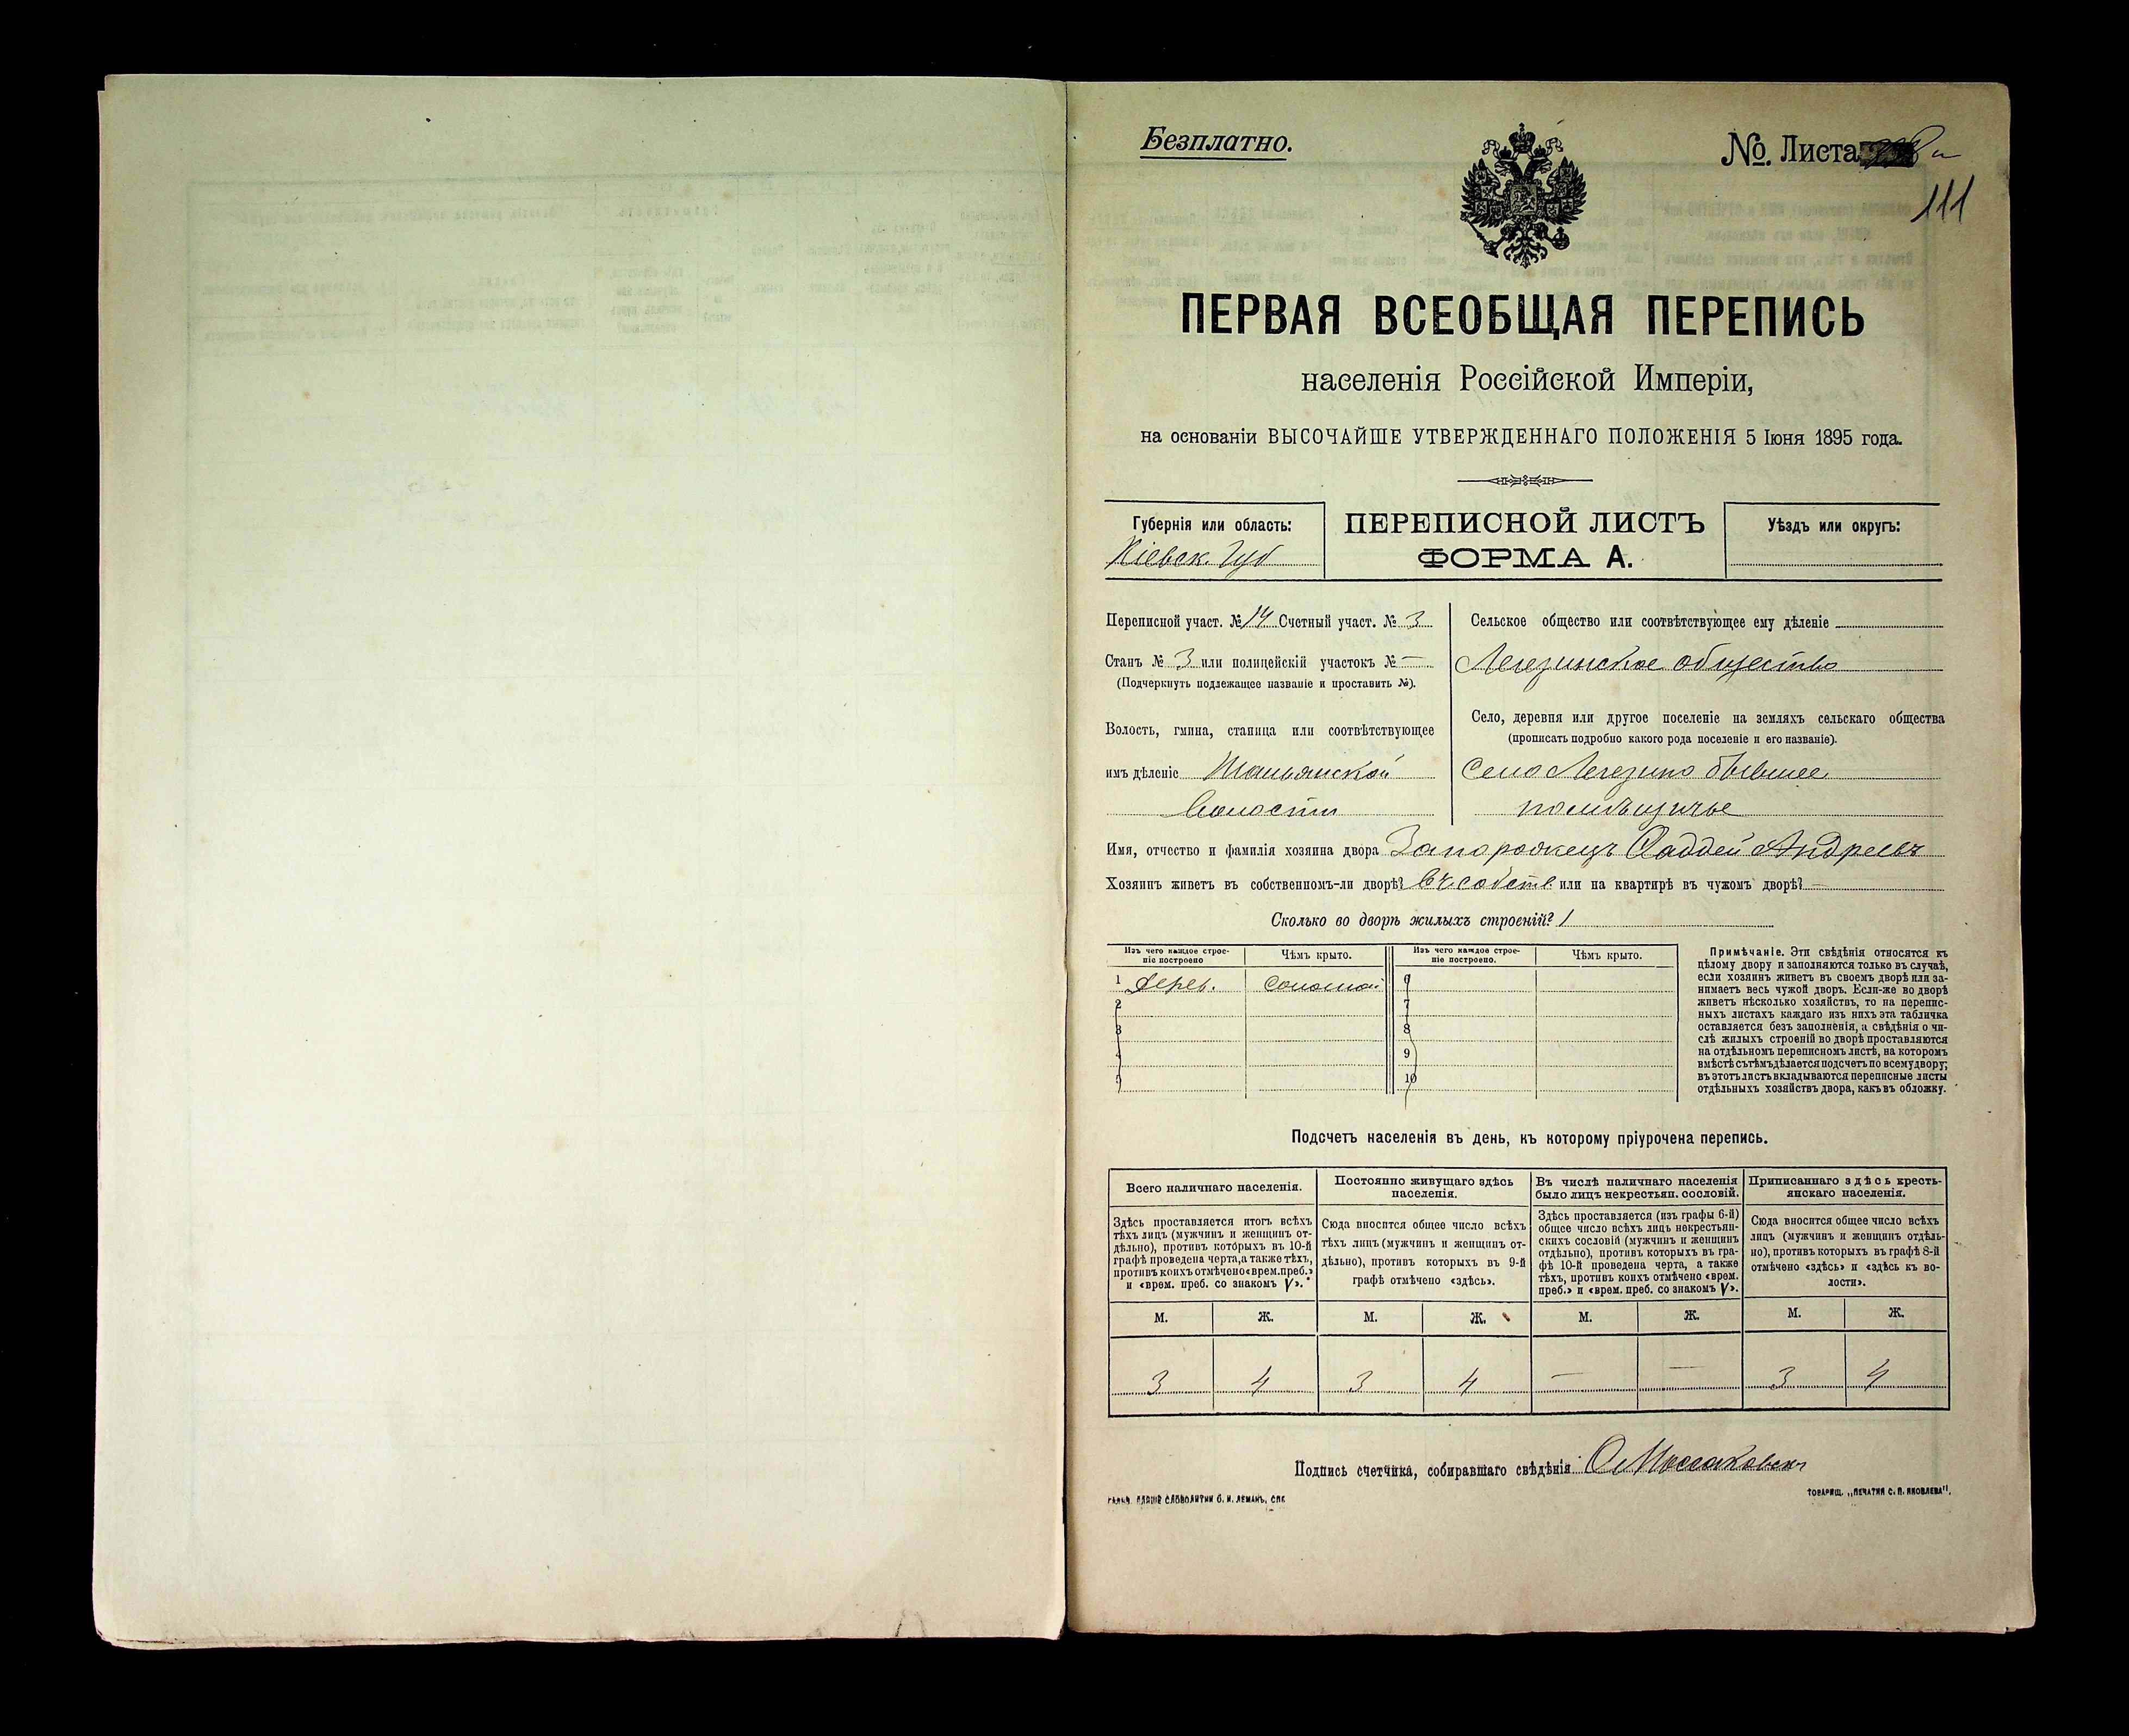 Безплатно.
№. Листа
111
ПЕРВАЯ ВСЕОБЩАЯ ПЕРЕПИСЬ
населенія Россійской Имперіи,
на основаніи ВЫСОЧАЙШЕ УТВЕРЖДЕННАГО ПОЛОЖЕНІЯ 5 Іюня 1895 года.
Губернія или область:
Кіевск. Губ
ПЕРЕПИСНОЙ ЛИСТЪ
ФОРМА А.
Уѣздъ или округъ:
Переписной участ. № 14 Счетный участ. № 3
Станъ № 3 или полицейскій участокъ № —
(Подчеркнуть подлежащее названіе и проставить №).
Волость, гмина, станица или соотвѣтствующее
имъ дѣленіе
Волости
Сельское общество или соотвѣтствующее ему дѣленіе
Легезинское общество
Село, деревня или другое поселеніе на земляхъ сельскаго общества
(прописать подробно какого рода поселеніе и его названіе).
Село Легезино бывшее
помѣщичье
Имя, отчество и фамилія хозяина двора Запорожецъ Фаддей Андреевъ
Хозяинъ живетъ въ собственномъ-ли дворѣ? въ собств. или на квартирѣ въ чужомъ дворѣ? —
Сколько во дворѣ жилыхъ строеній? 1
Изъ чего каждое строе-
ніе построено
Чѣмъ крыто.
Изъ чего каждое строе-
ніе построено.
Чѣмъ крыто.
1 Дерев. Соломой 6
2 7
3 8
4 9
5 10
Примѣчаніе. Эти свѣдѣнія относятся къ
цѣлому двору и заполняются только въ случаѣ,
если хозяинъ живетъ въ своемъ дворѣ или за-
нимаетъ весь чужой дворъ. Если-же во дворѣ
живетъ нѣсколько хозяйствъ, то на перепис-
ныхъ листахъ каждаго изъ нихъ эта табличка
оставляется безъ заполненія, а свѣдѣнія о чи-
слѣ жилыхъ строеній во дворѣ проставляются
на отдѣльномъ переписномъ листѣ, на которомъ
вмѣстѣ съ тѣмъ дѣлается подсчетъ по всему двору;
въ этотъ листъ вкладываются переписные листы
отдѣльныхъ хозяйствъ двора, какъ въ обложку.
Подсчетъ населенія въ день, къ которому пріурочена перепись.
Всего наличнаго населенія.
Здѣсь проставляется итогъ всѣхъ
тѣхъ лицъ (мужчинъ и женщинъ от-
дѣльно), противъ которыхъ въ 10-й
графѣ проведена черта, а также тѣхъ,
противъ коихъ отмѣчено «врем. преб.»
и «врем. преб. со знакомъ V».
Постоянно живущаго здѣсь
населенія.
Сюда вносится общее число всѣхъ
тѣхъ лицъ (мужчинъ и женщинъ от-
дѣльно), противъ которыхъ въ 9-й
графѣ отмѣчено «здѣсь».
Въ числѣ наличнаго населенія
было лицъ некрестьян. сословій.
Здѣсь проставляется (изъ графы 6-й)
общее число всѣхъ лицъ некрестьян-
скихъ сословій (мужчинъ и женщинъ
отдѣльно), противъ которыхъ въ гра-
фѣ 10-й проведена черта, а также
тѣхъ, противъ коихъ отмѣчено «врем.
преб.» и «врем. преб. со знакомъ V».
Приписаннаго здѣсь кресть-
янскаго населенія.
Сюда вносится общее число всѣхъ
лицъ (мужчинъ и женщинъ отдѣль-
но), противъ которыхъ въ графѣ 8-й
отмѣчено «здѣсь» и «здѣсь къ во-
лости».
М. Ж. М. Ж. М. Ж. М. Ж.
3 4 3 4 — — 3 4
Подпись счетчика, собиравшаго свѣдѣнія
ГАЛЬВ. КЛИШЕ СЛОВОЛИТНИ О. И. ЛЕМАНЪ, СПБ
ТОВАРИЩ. „ПЕЧАТНЯ С. П. ЯКОВЛЕВА".